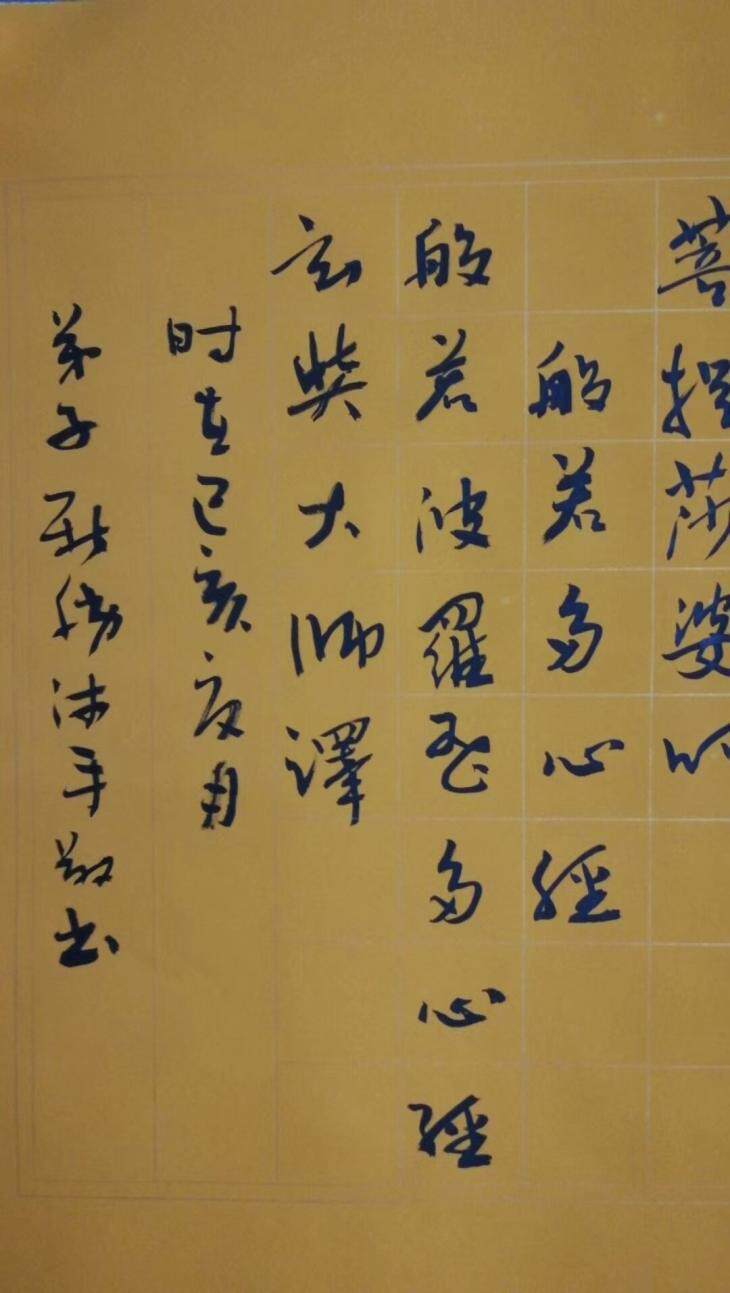 菩提莎婆呵
般若多心經
般若波羅蜜多心經
玄奘大師譯
时在己亥夏月
弟子勝沐手敬书